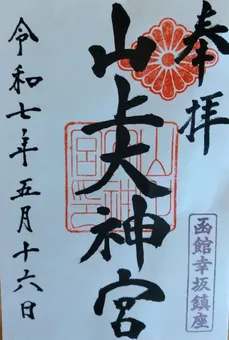 奉拝
山上大神宮
函館幸坂鎮座
令和七年五月十六日